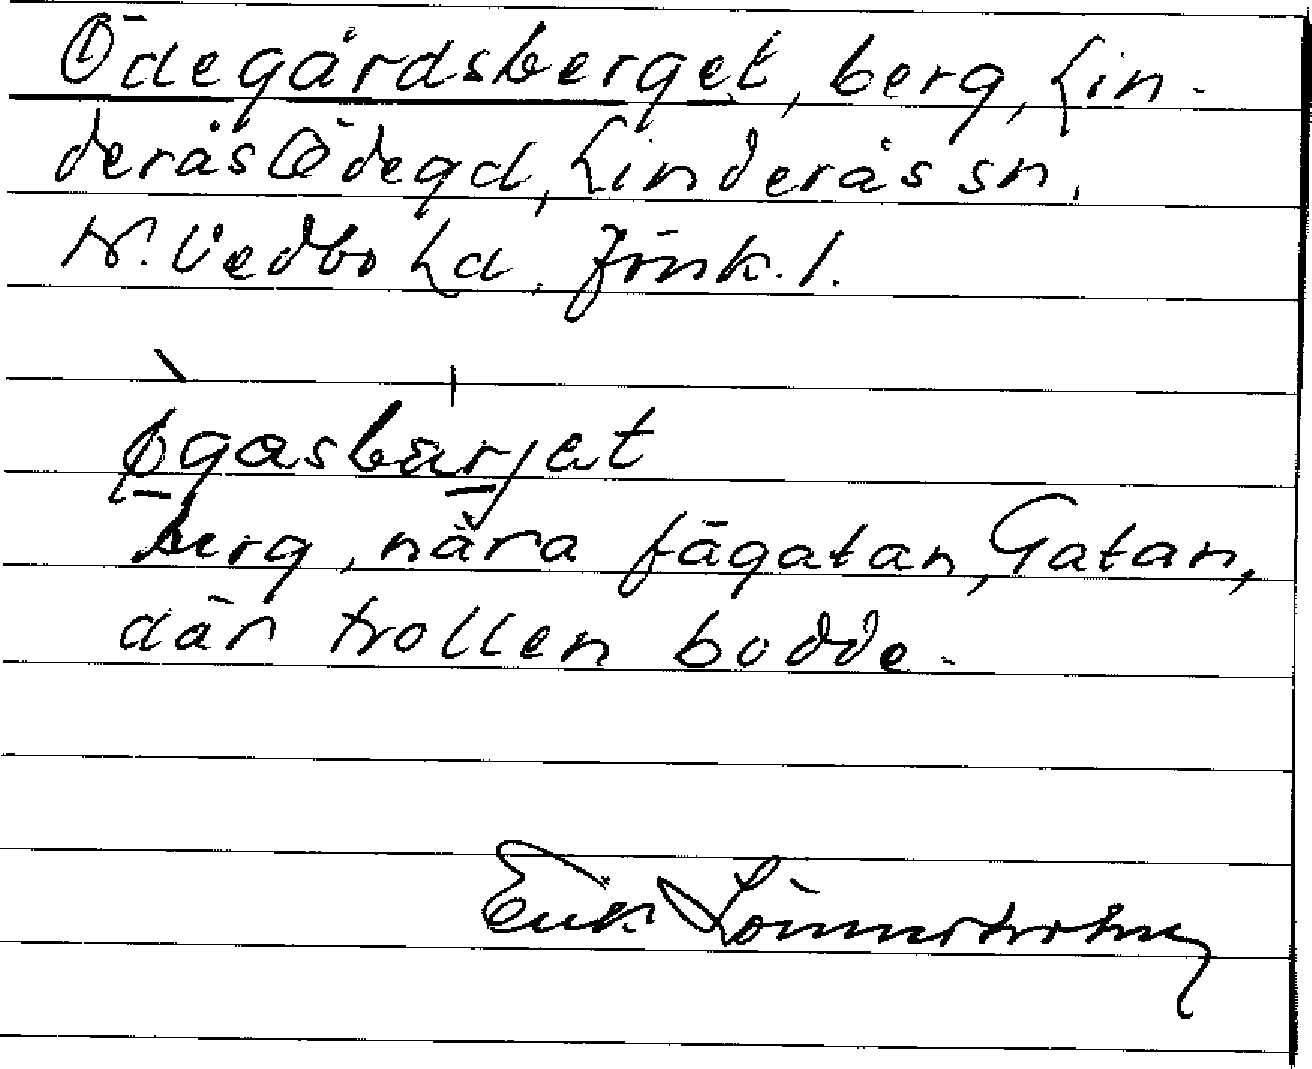 Ödegårdsberget, berg, Lin-
derås Ödegd, Linderås sn.
N. Vedbo hd. Jönk. l.
øgasbärjet
berg, nära fägatan, Gatan,
där trollen bodde.
Erik Lönnerholm